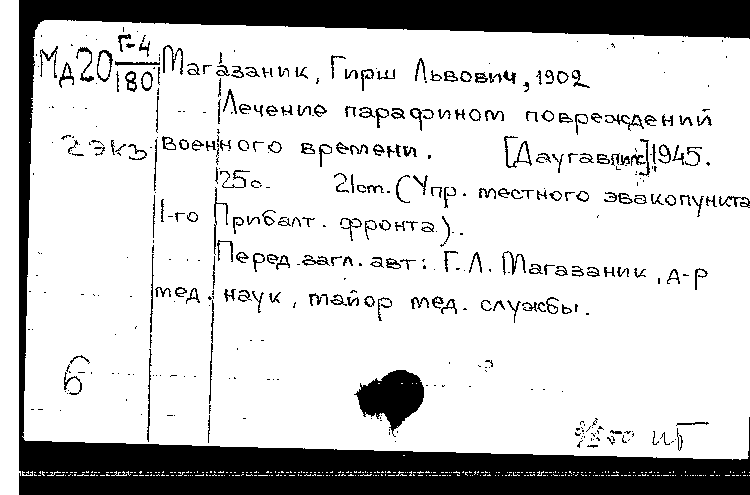 Мд20 Г-4/180
Магазаник, Гирш Львович, 1902
Лечение парафином повреждений
2 экз военного времени. [Даугавпилс] 1945.
25с. 21cm. (Упр. местного эвакопункта
1-го Прибалт. фронта).
Перед загл. авт: Г.Л. Магазаник, д-р
мед. наук, майор мед. службы.
6
50 иГ